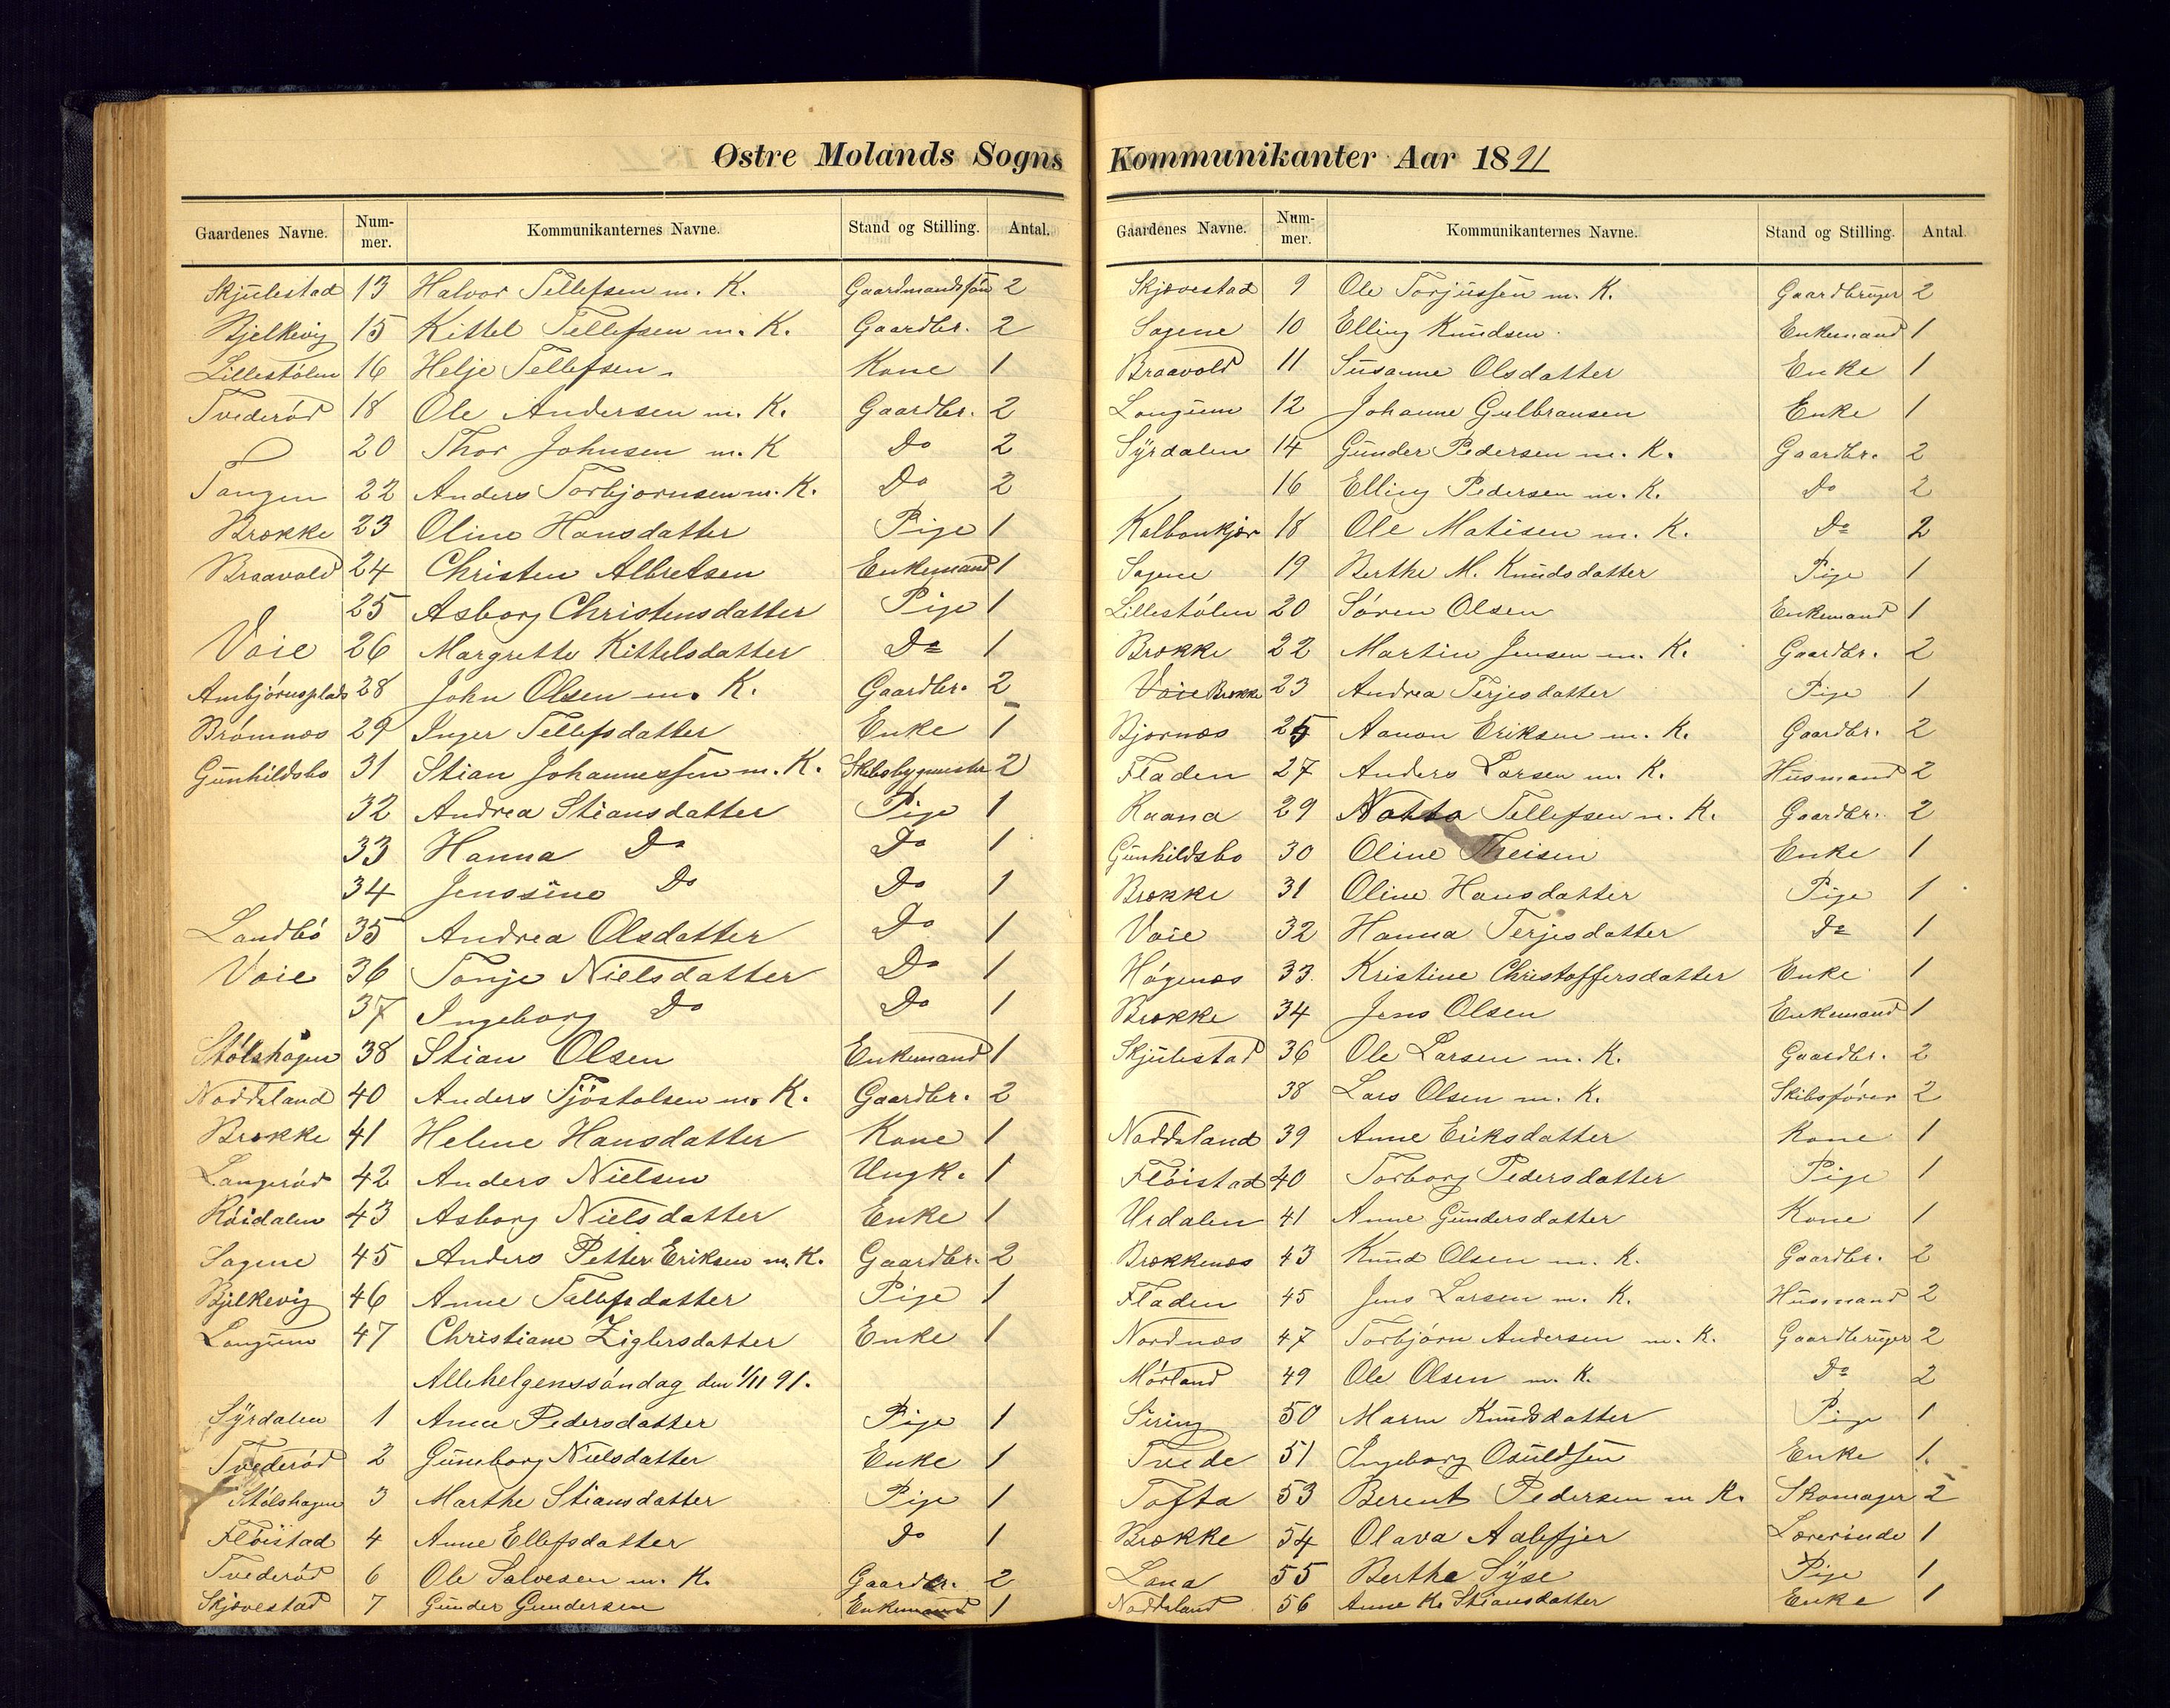 Østre Molands Sogns
Gaardenes Navne. Num-mer. Kommunikanternes Navne. Stand og Stilling. Antal.
Skjulestad 13 Halvor Tellefsen m. K. Gaardmandssøn 2
Bjelkevig 15 Kittel Tellefsen m. K. Gaardbr. 2
Lillestølen 16 Helje Tellefsen. Kone 1
Tvederød 18 Ole Andersen m. K. Gaardbr. 2
20 Thor Johnsen m. K Do 2
Tangen 22 Anders Torbjørnsen m. K. Do 2
Brække 23 Oline Hansdatter Pige 1
Braavold 24 Christen Albretsen Enkemand 1
25 Asborg Christensdatter Pige 1
Voie 26 Margrette Kittelsdatter Do 1
Ambjørnsplads 28 John Olsen m. K. Gaardbr. 2
Brømnæs 29 Inger Tellefsdatter Enke 1
Gunhildsbo 31 Stian Johannessen m. K. Skibsbygmester 2
32 Andrea Stiansdatter Pige 1
33 Hanna Do Do 1
34 Jenssine Do Do 1
Landbø 35 Andrea Olsdatter Do 1
Voie 36 Tonje Nielsdatter Do 1
37 Ingeborg Do Do 1
Stølshagen 38 Stian Olsen Enkemand 1
Noddeland 40 Anders Tjøstolsen m. K. Gaardbr. 2
Brække 41 Helene Hansdatter Kone 1
Langerød 42 Anders Nielsen Ungk. 1
Røidalen 43 Asborg Nielsdatter Enke 1
Sagene 45 Anders Petter Eriksen m. K. Gaardbr. 2
Bjelkevig 46 Anne Tellefsdatter Pige 1
Langum 47 Christiane Ziglersdatter Enke 1
Allehelgenssøndag den 1/11 91.
Syrdalen 1 Anne Pedersdatter Pige 1
Tvederød 2 Guneborg Nielsdatter Enke 1
Stølshagen 3 Marthe Stiansdatter Pige 1
Fløistad 4 Anne Ellefsdatter Do 1
Tvederød 6 Ole Salvesen m. K. Gaardbr. 2
Skjævestad 7 Gunder Gundersen Enkemand 1
Kommunikanter Aar 1891
Gaardenes Navne. Num-mer. Kommunikanternes Navne. Stand og Stilling. Antal.
Skjævestad 9 Ole Torjussen m. K. Gaardbruger 2
Sagene 10 Elling Knudsen. Enkemand 1
Braavold 11 Susanne Olsdatter Enke 1
Langum 12 Johanne Gulbransen Enke 1
Syrdalen 14 Gunder Pedersen m. K. Gaardbr. 2
16 Elling Pedersen m. K. Do 2
Kalvenkjær 18 Ole Matisen m. K. Do 2
Sagene 19 Berthe M. Knudsdatter Pige 1
Lillestølen 20 Søren Olsen Enkemand 1
Brække 22 Martin Jensen m. K. Gaardbr. 2
Voie Brække 23 Andrea Terjesdatter Pige 1
Bjørnæs 25 Aanon Eriksen m. K. Gaardbr. 2
Fladen 27 Anders Larsen m. K. Husmand 2
Raana 29 Tellefsen m. K. Gaardbr. 2
Gunhildsbo 30 Oline Theisen Enke 1
Brække 31 Oline Hansdatter Pige 1
Voie 32 Hanna Terjesdatter Do 1
Høgenæs 33. Kristine Christoffersdatter Enke 1
Brække 34 Jens Olsen Enkemand 1
Skjulestad 36 Ole Larsen m. K. Gaardbr. 2
38 Lars Olsen m. K. Skibsfører 2
Noddeland 39 Anne Eriksdatter Kone 1
Fløistad 40 Torborg Pedersdatter Pige 1
Urdalen 41 Anne Gundersdatter Kone 1
Brækkenæs 43 Knud Olsen m. K. Gaardbr. 2
Fladen 45 Jens Larsen m. K. Husmand 2
Nordnæs 47 Torbjørn Andersen m. K. Gaardbruger 2
Mørland 49 Ole Olsen m. K. Do 2
Siring 50 Maren Knudsdatter Pige 1
Tvede 51 Ingeborg Osuldsen Enke 1.
Tofta 53 Berent Pedersen m K. Skomager 2
Brække 54 Olava Aalefjer Lærerinde 1
Lona 55 Berthe Syse Pige 1
Noddeland 56 Anne K. Stiansdatter Enke 1